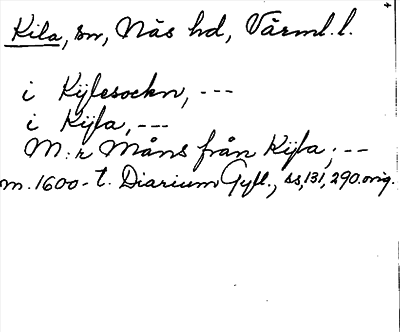 Kila, sn, Näs hd, Värml. l.
i Kijlesockn, ---
i Kijla, ---
M:r Måns från Kijla; --
m. 1600-t. Diarium Gyll., ss, 131, 290. orig.